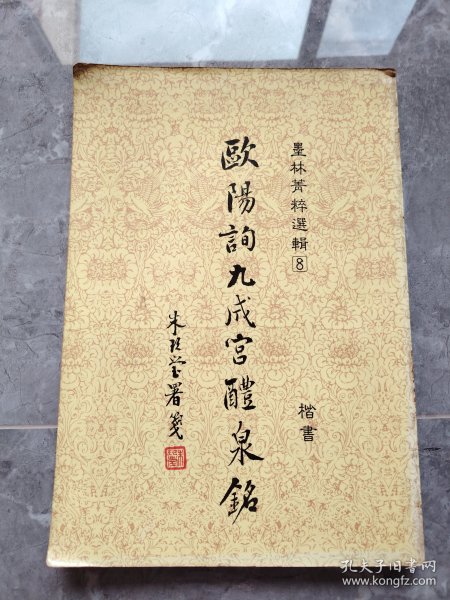 墨林菁粹選輯8
楷書
歐陽詢九成宮醴泉銘
孔夫子旧书网
www.kongfz.com